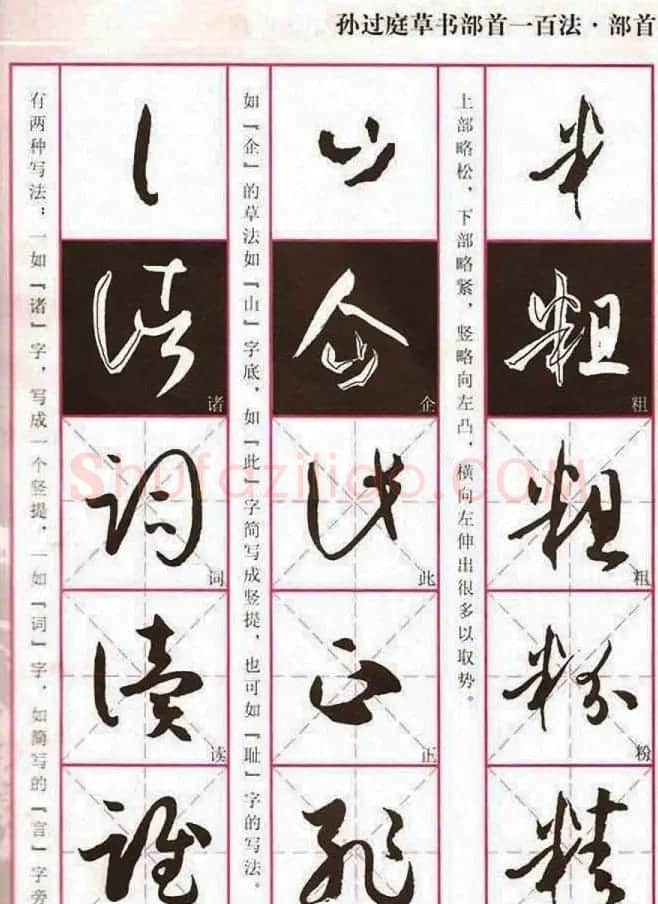 孙过庭草书部首一百法·部首
上部略松，下部略紧，竖略向左凸，横向左伸出很多以取势。
粗
粗
粉
如「企」的草法如「山」字底，如「此」字简写成竖提，也可如「耻」字的写法。
企
此
正
有两种写法：一如「诸」字，写成一个竖提，一如「词」字，如简写的「言」字旁
诸
词
读
Shufaziliao.COM